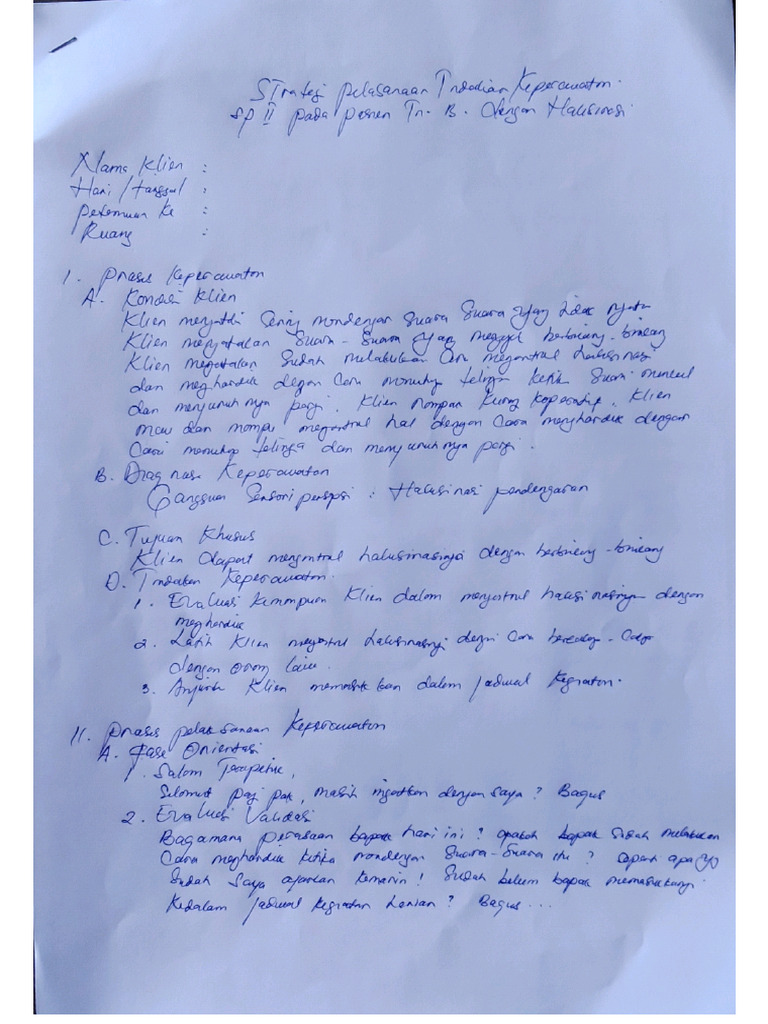 Strategi Pelasanaan Tindakan Keperawatan.
SP II pada pasien Tn. B. dengan Halusinasi
Nama Klien :
Hari / tanggal :
Pertemuan Ke :
Ruang :
I. Proses Keperawatan
A. Kondisi Klien
Klien mengatakan Sering mendengar Suara Suara yang tidak nyata
Klien mengatakan Suara - Suara yang mengajak berbincang - bincang
Klien mengatakan Sudah melakukan Cara mengontrol halusinasi
dan menghardik dengan Cara menutup telinga ketika Suara muncul
dan menyuruhnya pergi. Klien Nampak Kurang Koperatif, Klien
mau dan mampu mengontrol hal dengan Cara menghardik dengan
Cara menutup telinga dan menyuruhnya pergi.
B. Diagnosa Keperawatan
Gangguan Sensori persepsi : Halusinasi pendengaran
C. Tujuan Khusus
Klien dapat mengontrol halusinasinya dengan berbincang - bincang
D. Tindakan Keperawatan.
1. Evaluasi Kemampuan Klien dalam mengontrol halusinasinya dengan
menghardik
2. Latih Klien mengontrol halusinasinya dengan Cara
dengan orang lain.
3. Anjurkan Klien memasukkan dalam jadwal Kegiatan.
II. Proses pelaksanaan Keperawatan
A. Fase Orientasi
1. Salam Terapetik,
Selamat pagi pak, masih ingatkan dengan saya? Bagus
2. Evaluasi Validasi
Bagamana perasaan bapak hari ini? apakah bapak Sudah melakukan
Cara menghardik ketika mendengar Suara-Suara itu? Seperti apa yg
Sudah Saya ajarkan Kemarin! Sudah belum bapak memasukannya
Kedalam Jadwal Kegiatan harian? Bagus ...